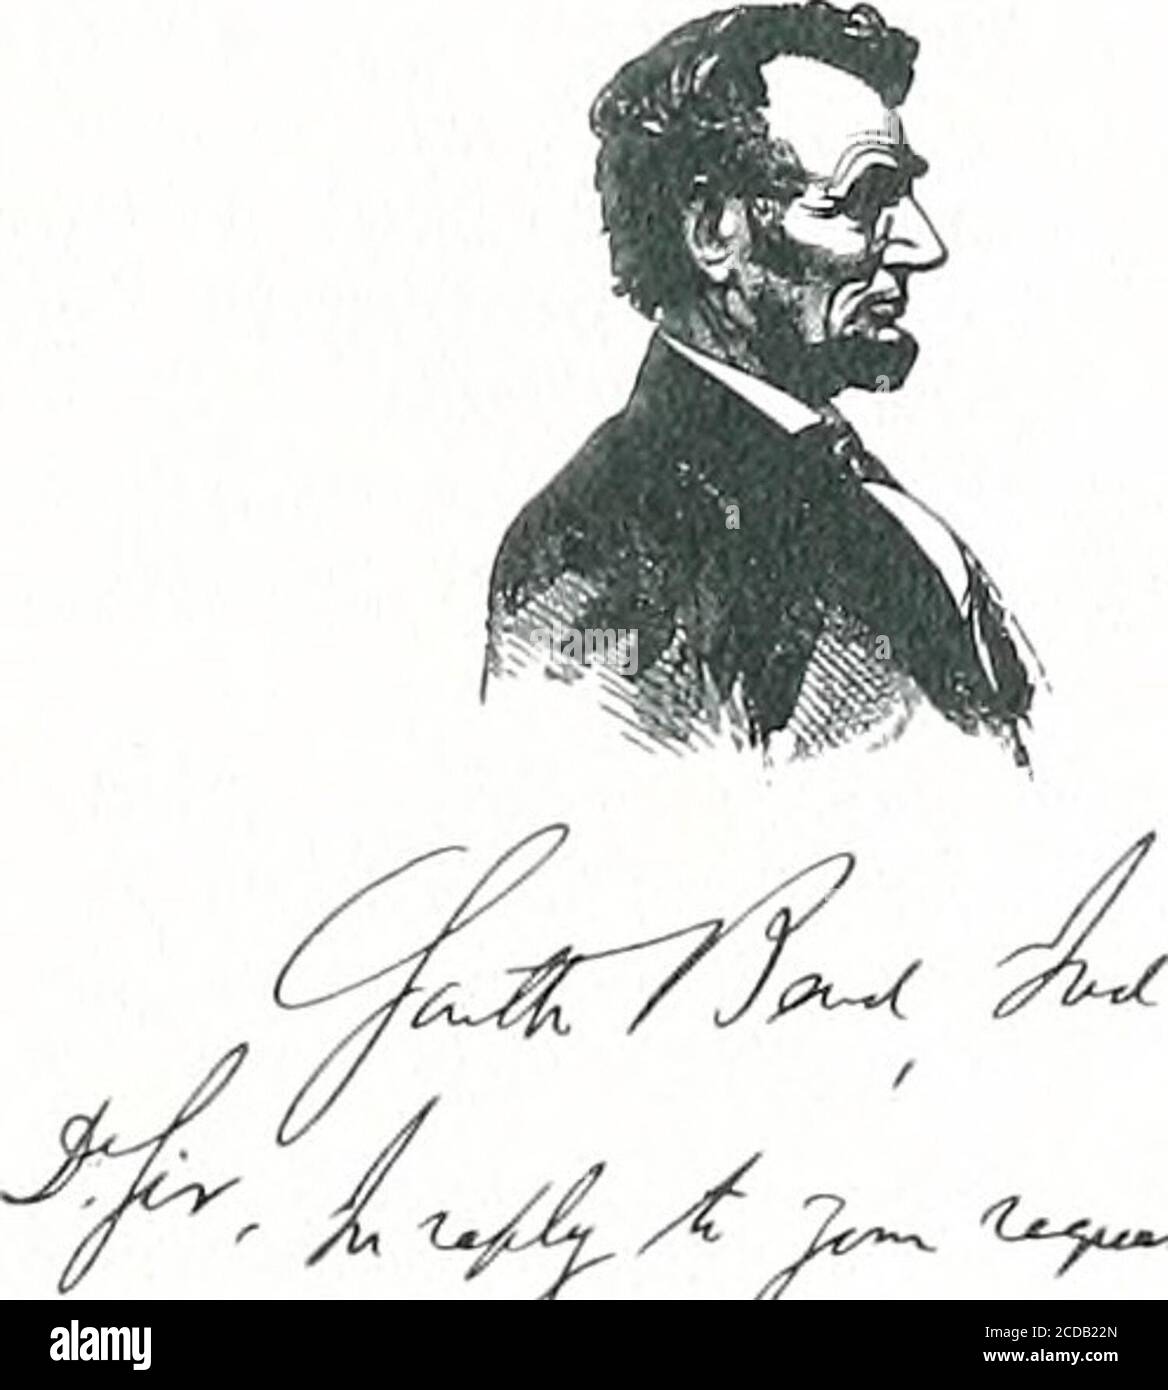 South Bend, Ind
Dr. Sir, In reply to your reques
a
a
a
alamy
a
alamy
Image ID: 2CDB22N
www.alamy.com